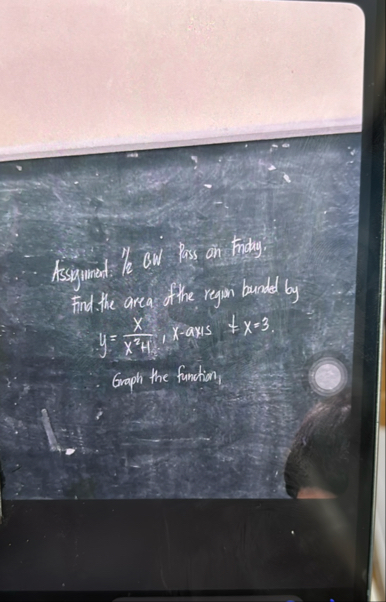 Assignment: 1/2 CW Pass on Friday.
Find the area of the region bunded by
y = x/x²+1, x-axis & x=3.
Graph the function,